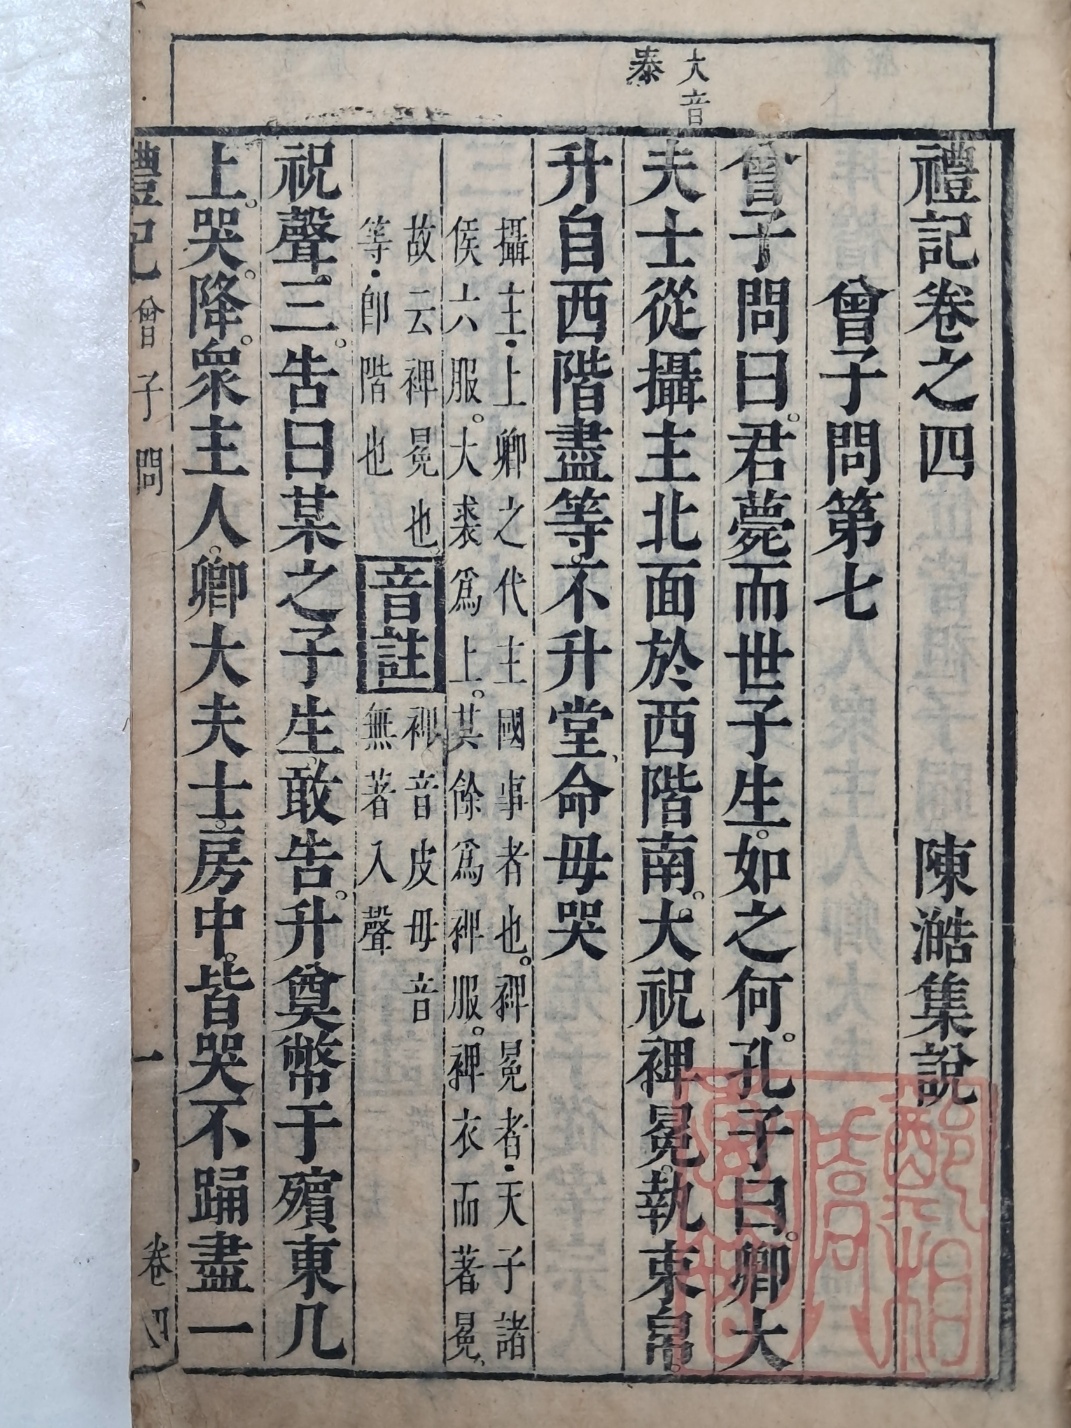 大音
泰
禮記卷之四 陳澔集說
曾子問第七
曾子問曰。君薨而世子生。如之何。孔子曰。卿大
夫士從攝主北面於西階南。大祝裨冕。執束帛。
升自西階盡等。不升堂、命毋哭
攝主・上卿之代主國事者也。裨冕者・天子諸
侯六服。大裘爲上。其餘爲裨服。裨衣而著冕、
故云裨冕也
等・卽階也
音註
裨音皮毋音
無著入聲
祝聲三。告曰某之子生。敢告。升奠幣于殯東几
上。哭。降。衆主人。卿大夫士。房中。皆哭不踊盡一
禮記 曾子問 一 卷四